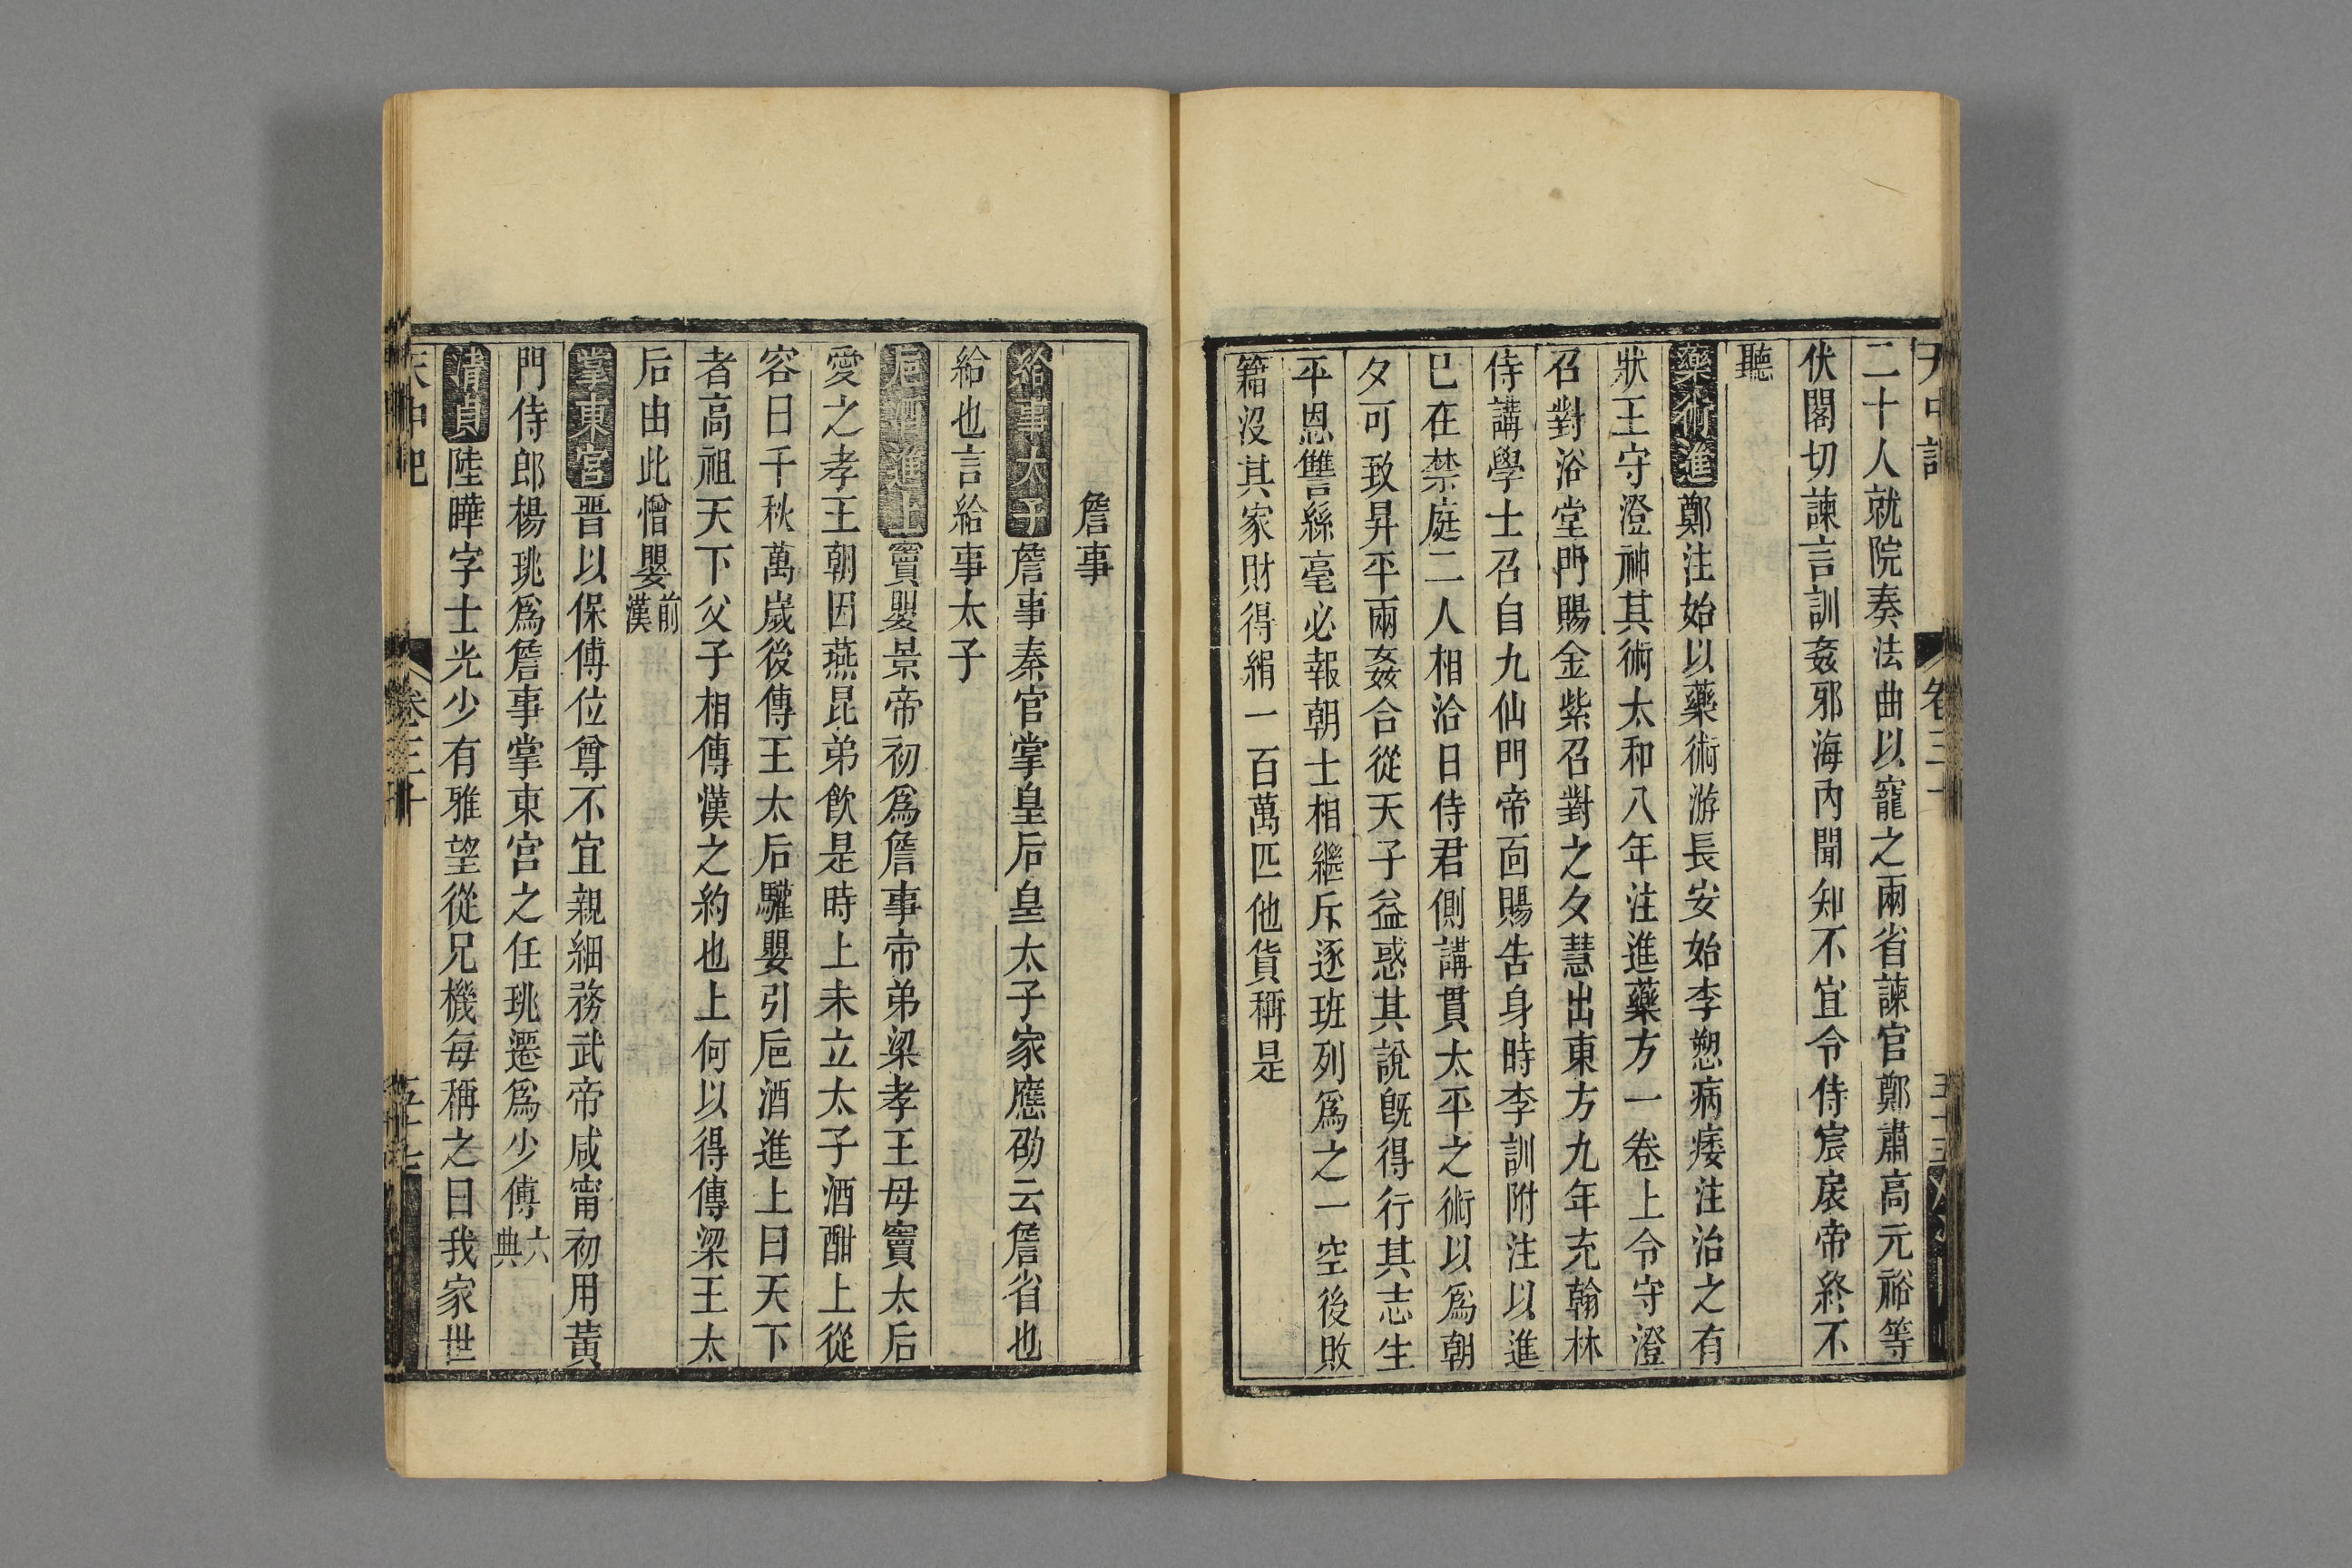 天中記
卷三十
二十人就院奏法曲以寵之兩省諫官鄭肅高元裕等
伏閣切諫言訓姦邪海內聞知不宜令侍宸扆帝終不
聽
藥術進鄭注始以藥術游長安始李愬病痿注治之有
狀王守澄神其術太和八年注進藥方一卷上令守澄
召對浴堂門賜金紫召對之夕慧出東方九年充翰林
侍講學士召自九仙門帝面賜告身時李訓附注以進
巳在禁庭二人相洽日侍君側講貫太平之術以爲朝
夕可致昇平兩姦合從天子益惑其說旣得行其志生
平恩讐絲毫必報朝士相繼斥逐班列爲之一空後敗
籍沒其家財得絹一百萬匹他貨稱是
詹事
給事太子詹事秦官掌皇后皇太子家應劭云詹省也
給也言給事太子
巵酒進上竇嬰景帝初爲詹事帝弟梁孝王母竇太后
愛之孝王朝因燕昆弟飮是時上未立太子酒酣上從
容曰千秋萬歲後傳王太后驩嬰引巵酒進上曰天下
者高祖天下父子相傳漢之約也上何以得傳梁王太
后由此憎嬰前漢
掌東宮晋以保傅位尊不宜親細務武帝咸甯初用黃
門侍郎楊珧爲詹事掌東宮之任珧遷爲少傅六典
清貞陸曄字士光少有雅望從兄機每稱之曰我家世
天中記
卷三十